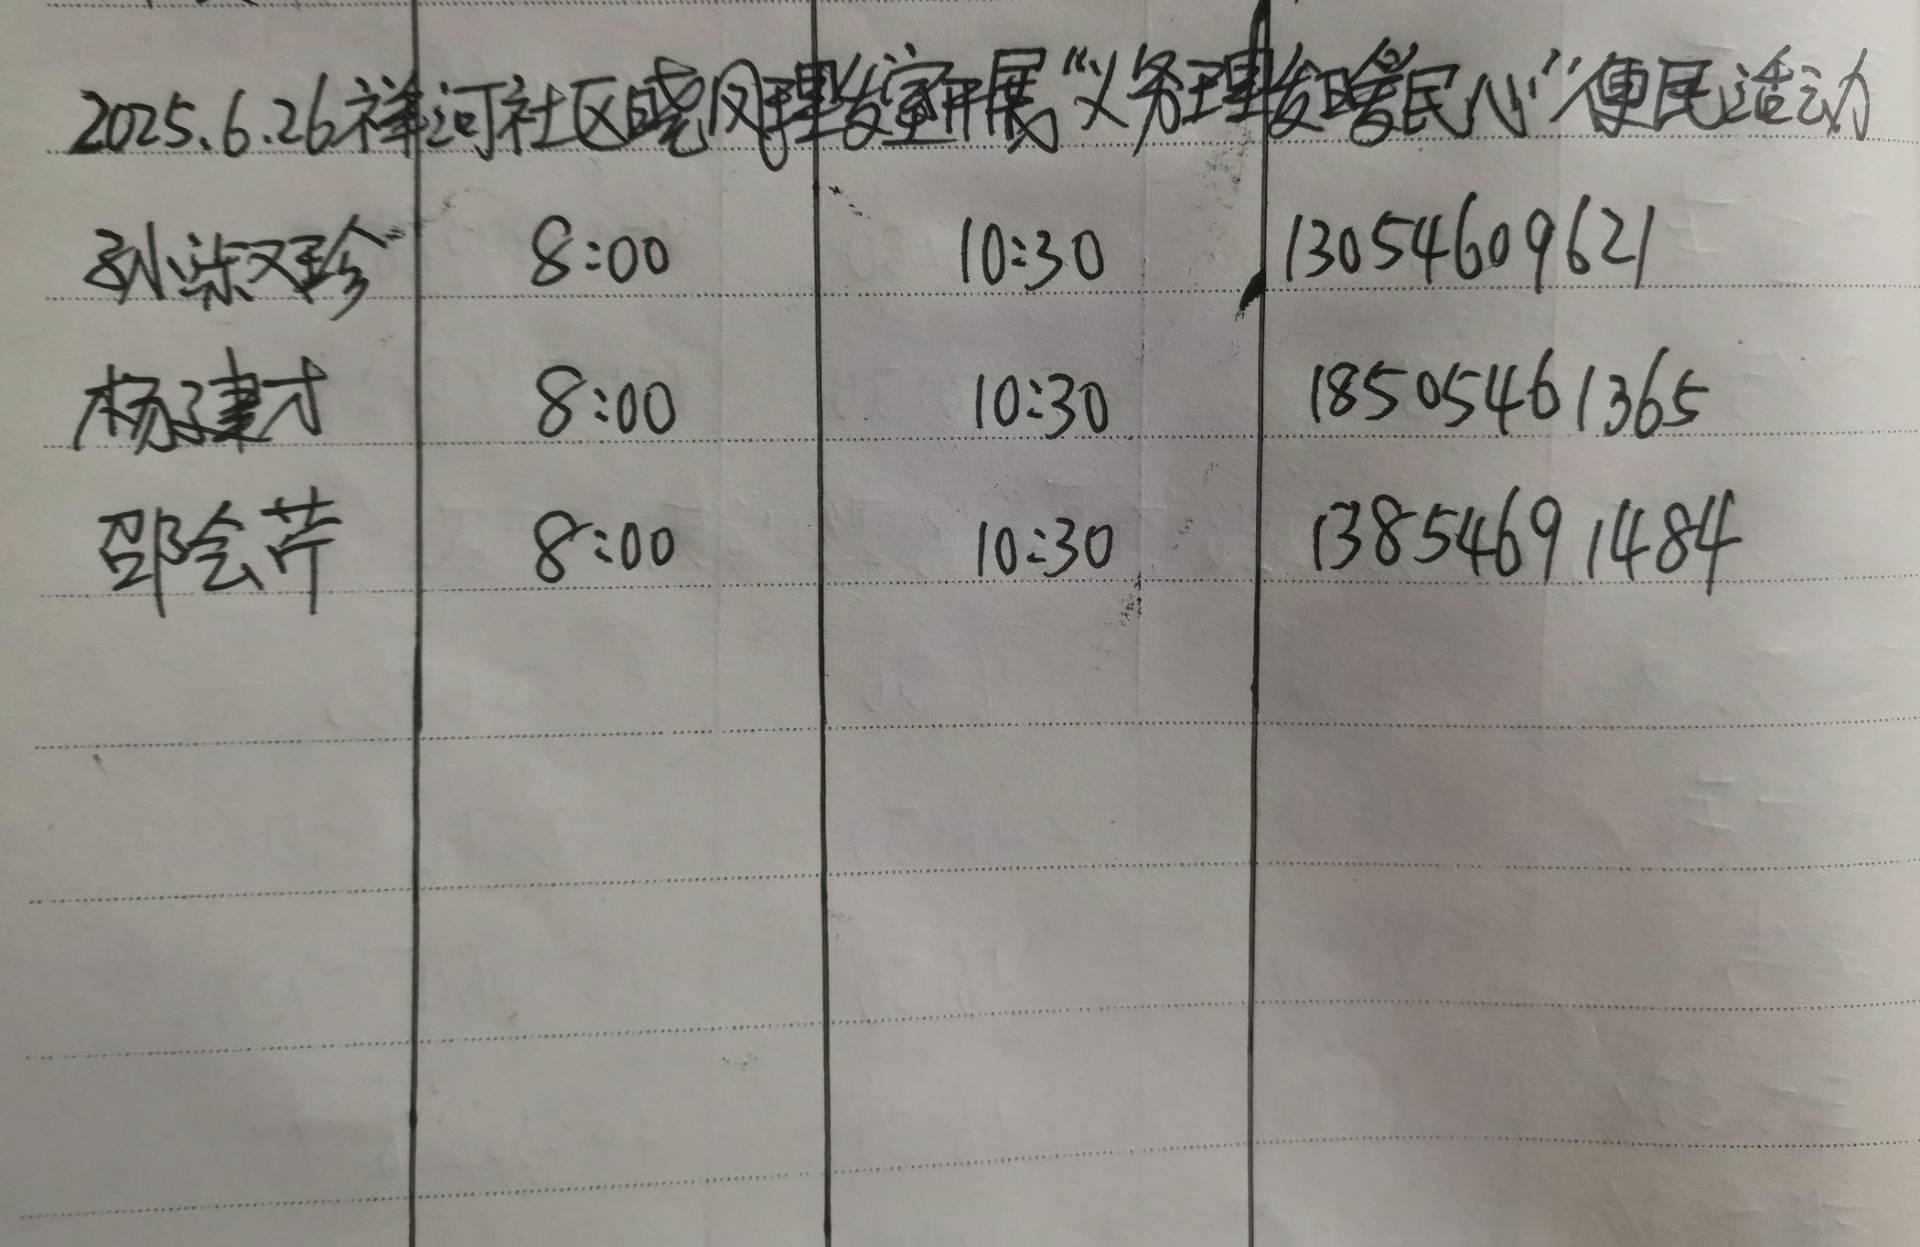 2025.6.26祥河社区晓风理发室开展“义务理发暖民心”便民活动
孙荣珍 8:00 10:30 13054609621
杨建才 8:00 10:30 18505461365
邵会芹 8:00 10:30 13854691484